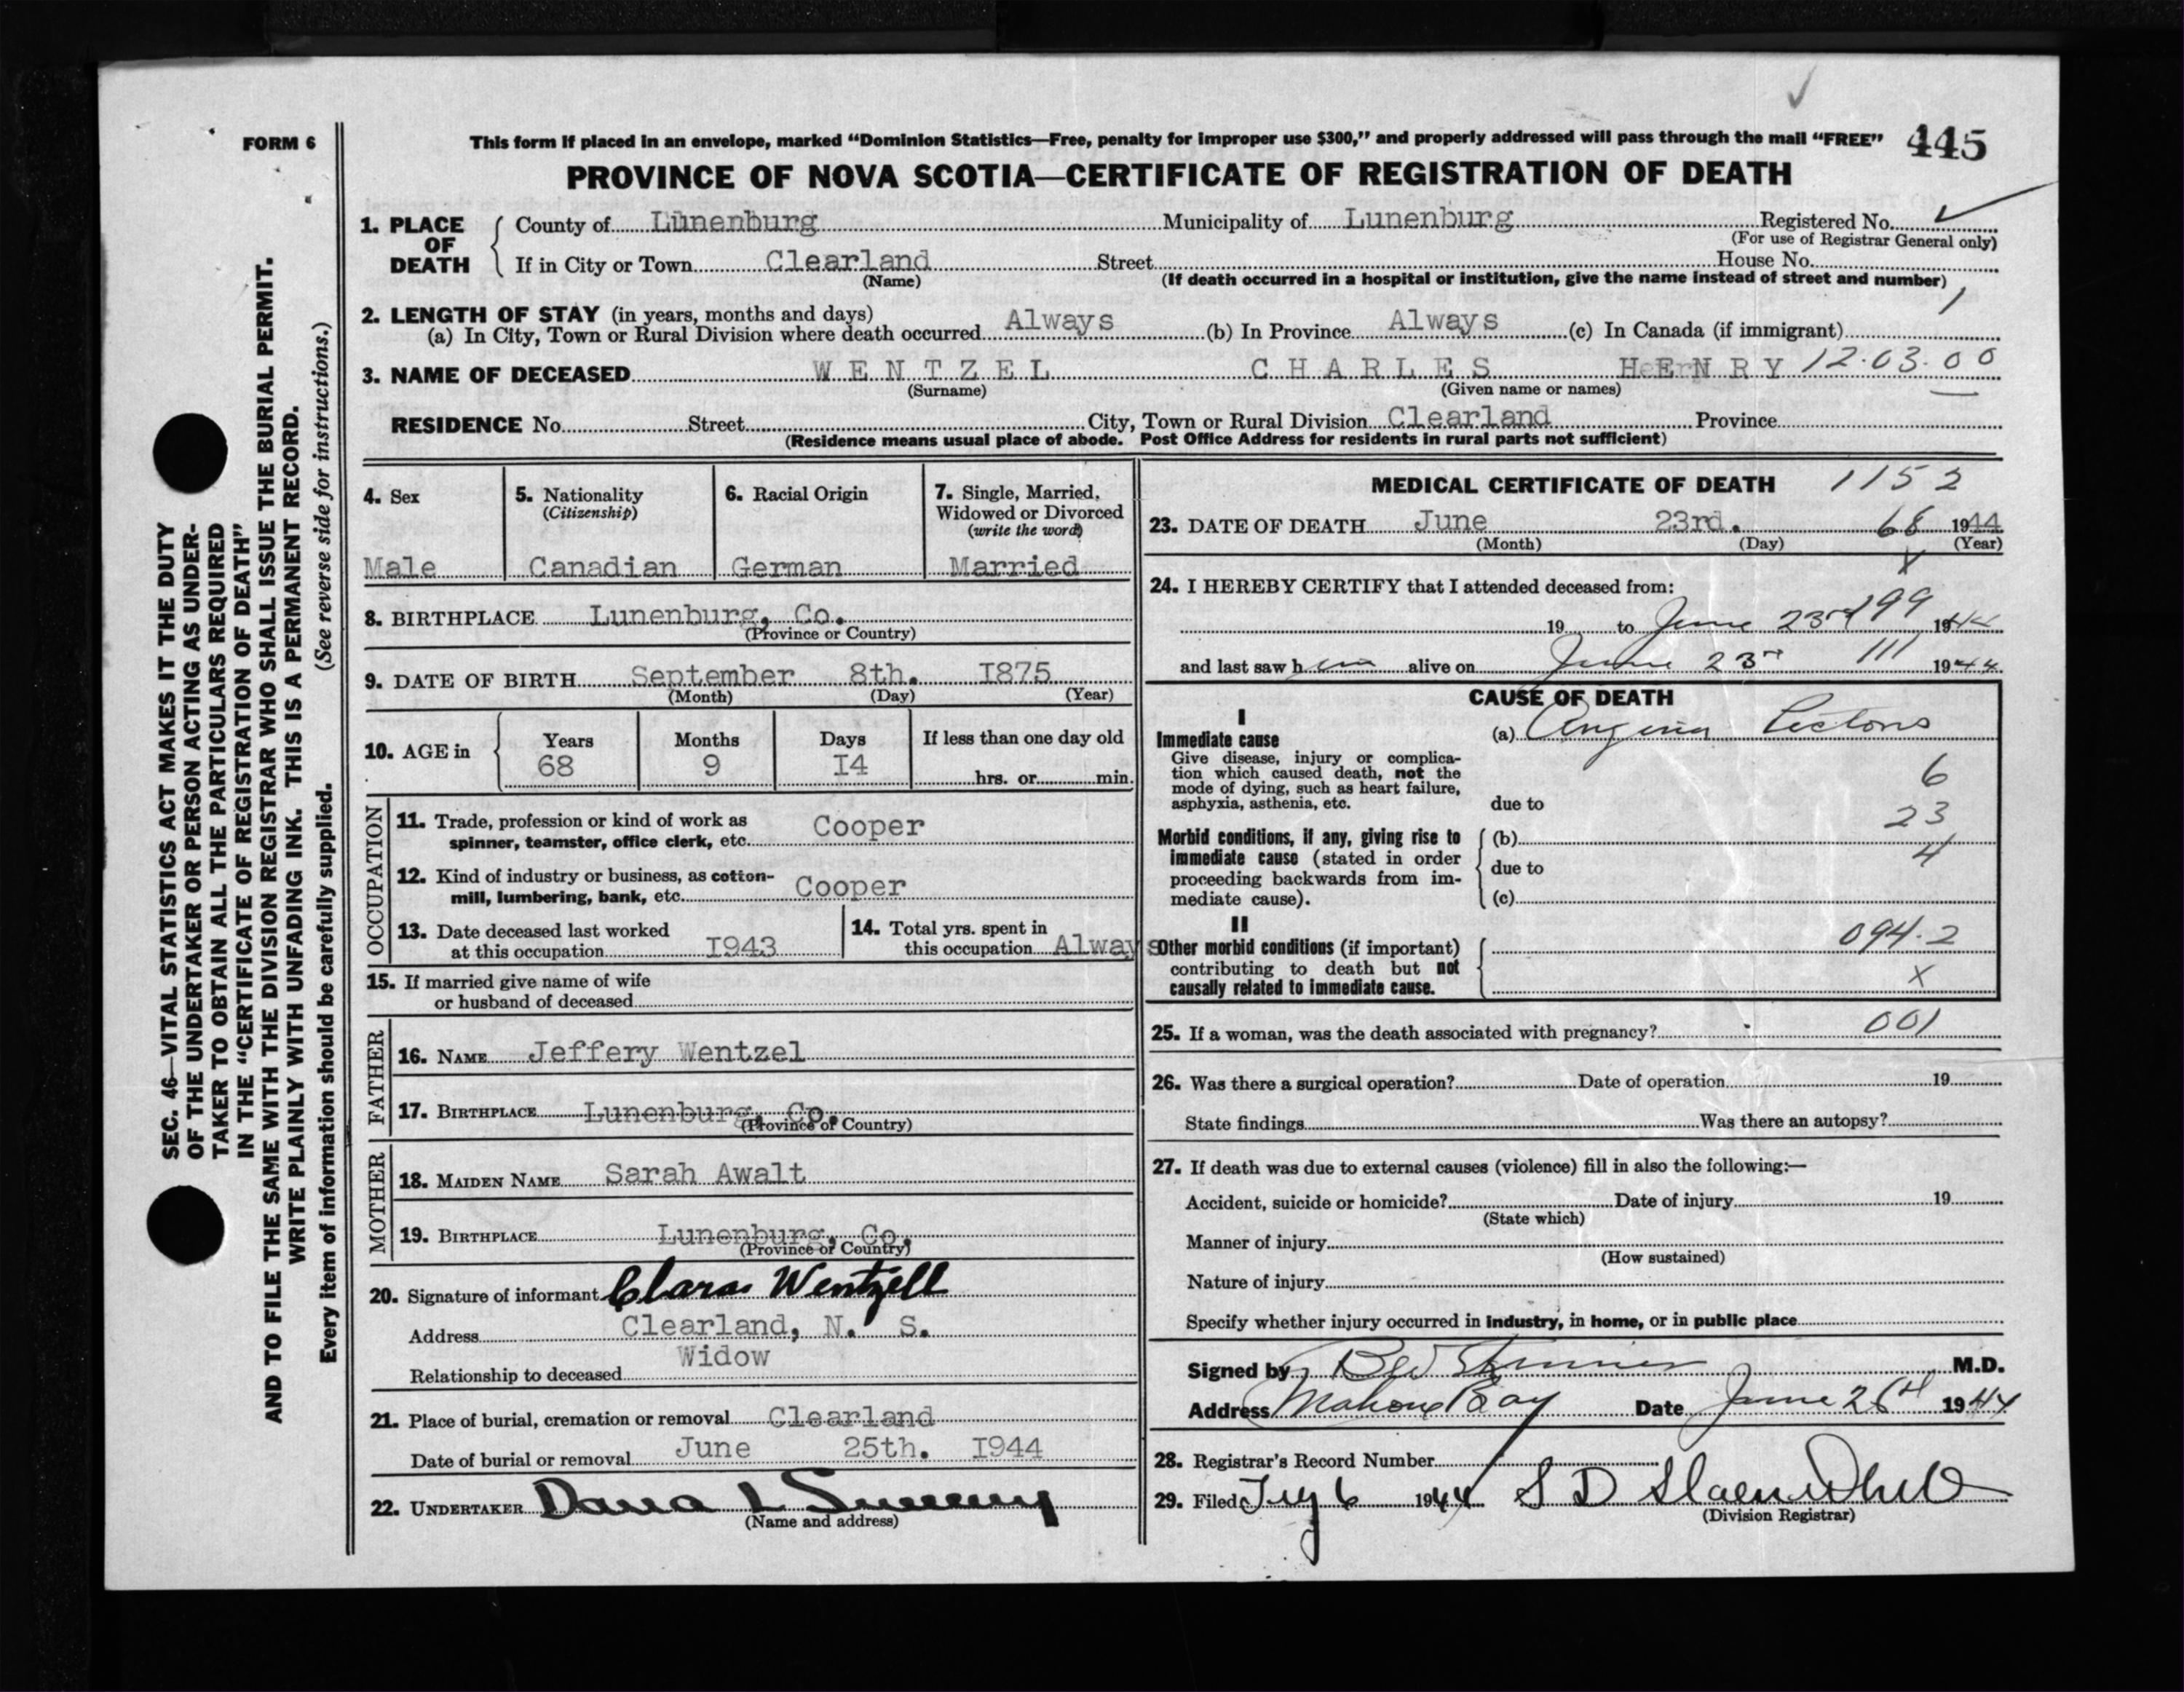 FORM 6
This form if placed in an envelope, marked "Dominion Statistics—Free, penalty for improper use $300," and properly addressed will pass through the mail "FREE" 445
PROVINCE OF NOVA SCOTIA—CERTIFICATE OF REGISTRATION OF DEATH
SEC. 46—VITAL STATISTICS ACT MAKES IT THE DUTY
OF THE UNDERTAKER OR PERSON ACTING AS UNDER-
TAKER TO OBTAIN ALL THE PARTICULARS REQUIRED
IN THE "CERTIFICATE OF REGISTRATION OF DEATH"
AND TO FILE THE SAME WITH THE DIVISION REGISTRAR WHO SHALL ISSUE THE BURIAL PERMIT.
WRITE PLAINLY WITH UNFADING INK. THIS IS A PERMANENT RECORD.
Every item of information should be carefully supplied. (See reverse side for instructions.)
1. PLACE OF DEATH
County of Lunenburg Municipality of Lunenburg Registered No.
(For use of Registrar General only)
If in City or Town Clearland Street House No.
(Name) (If death occurred in a hospital or institution, give the name instead of street and number)
2. LENGTH OF STAY (in years, months and days)
(a) In City, Town or Rural Division where death occurred Always (b) In Province Always (c) In Canada (if immigrant) 1
3. NAME OF DECEASED WENTZEL CHARLES HENRY 12.03.00
(Surname) (Given name or names)
RESIDENCE No. Street City, Town or Rural Division Clearland Province
(Residence means usual place of abode. Post Office Address for residents in rural parts not sufficient)
4. Sex
Male
5. Nationality
(Citizenship)
Canadian
6. Racial Origin
German
7. Single, Married,
Widowed or Divorced
(write the word)
Married
8. BIRTHPLACE Lunenburg, Co.
(Province or Country)
9. DATE OF BIRTH September 8th. 1875
(Month) (Day) (Year)
10. AGE in
Years Months Days If less than one day old
68 9 14 hrs. or min.
OCCUPATION
11. Trade, profession or kind of work as
spinner, teamster, office clerk, etc. Cooper
12. Kind of industry or business, as cotton-
mill, lumbering, bank, etc. Cooper
13. Date deceased last worked
at this occupation 1943
14. Total yrs. spent in
this occupation Always
15. If married give name of wife
or husband of deceased
FATHER
16. NAME Jeffery Wentzel
17. BIRTHPLACE Lunenburg, Co.
(Province or Country)
MOTHER
18. MAIDEN NAME Sarah Awalt
19. BIRTHPLACE Lunenburg, Co.
(Province or Country)
20. Signature of informant Clara Wentzell
Address Clearland, N. S.
Relationship to deceased Widow
21. Place of burial, cremation or removal Clearland
Date of burial or removal June 25th. 1944
22. UNDERTAKER Dana L Sweeny
(Name and address)
MEDICAL CERTIFICATE OF DEATH 1152
23. DATE OF DEATH June 23rd. 68 1944
(Month) (Day) (Year)
24. I HEREBY CERTIFY that I attended deceased from: x
19 to June 23rd 199 1944
and last saw him alive on June 23rd 111 1944
CAUSE OF DEATH
I
Immediate cause
Give disease, injury or complica-
tion which caused death, not the
mode of dying, such as heart failure,
asphyxia, asthenia, etc.
(a) Angina Pectoris
6
due to
23
Morbid conditions, if any, giving rise to
immediate cause (stated in order
proceeding backwards from im-
mediate cause).
(b)
4
due to
(c)
II
Other morbid conditions (if important)
contributing to death but not
causally related to immediate cause.
094.2
x
25. If a woman, was the death associated with pregnancy? 001
26. Was there a surgical operation? Date of operation 19
State findings Was there an autopsy?
27. If death was due to external causes (violence) fill in also the following:—
Accident, suicide or homicide? Date of injury 19
(State which)
Manner of injury
(How sustained)
Nature of injury
Specify whether injury occurred in industry, in home, or in public place
Signed by M.D.
Address Mahone Bay Date June 26th 1944
28. Registrar's Record Number
29. Filed 6 1944 S D
(Division Registrar)